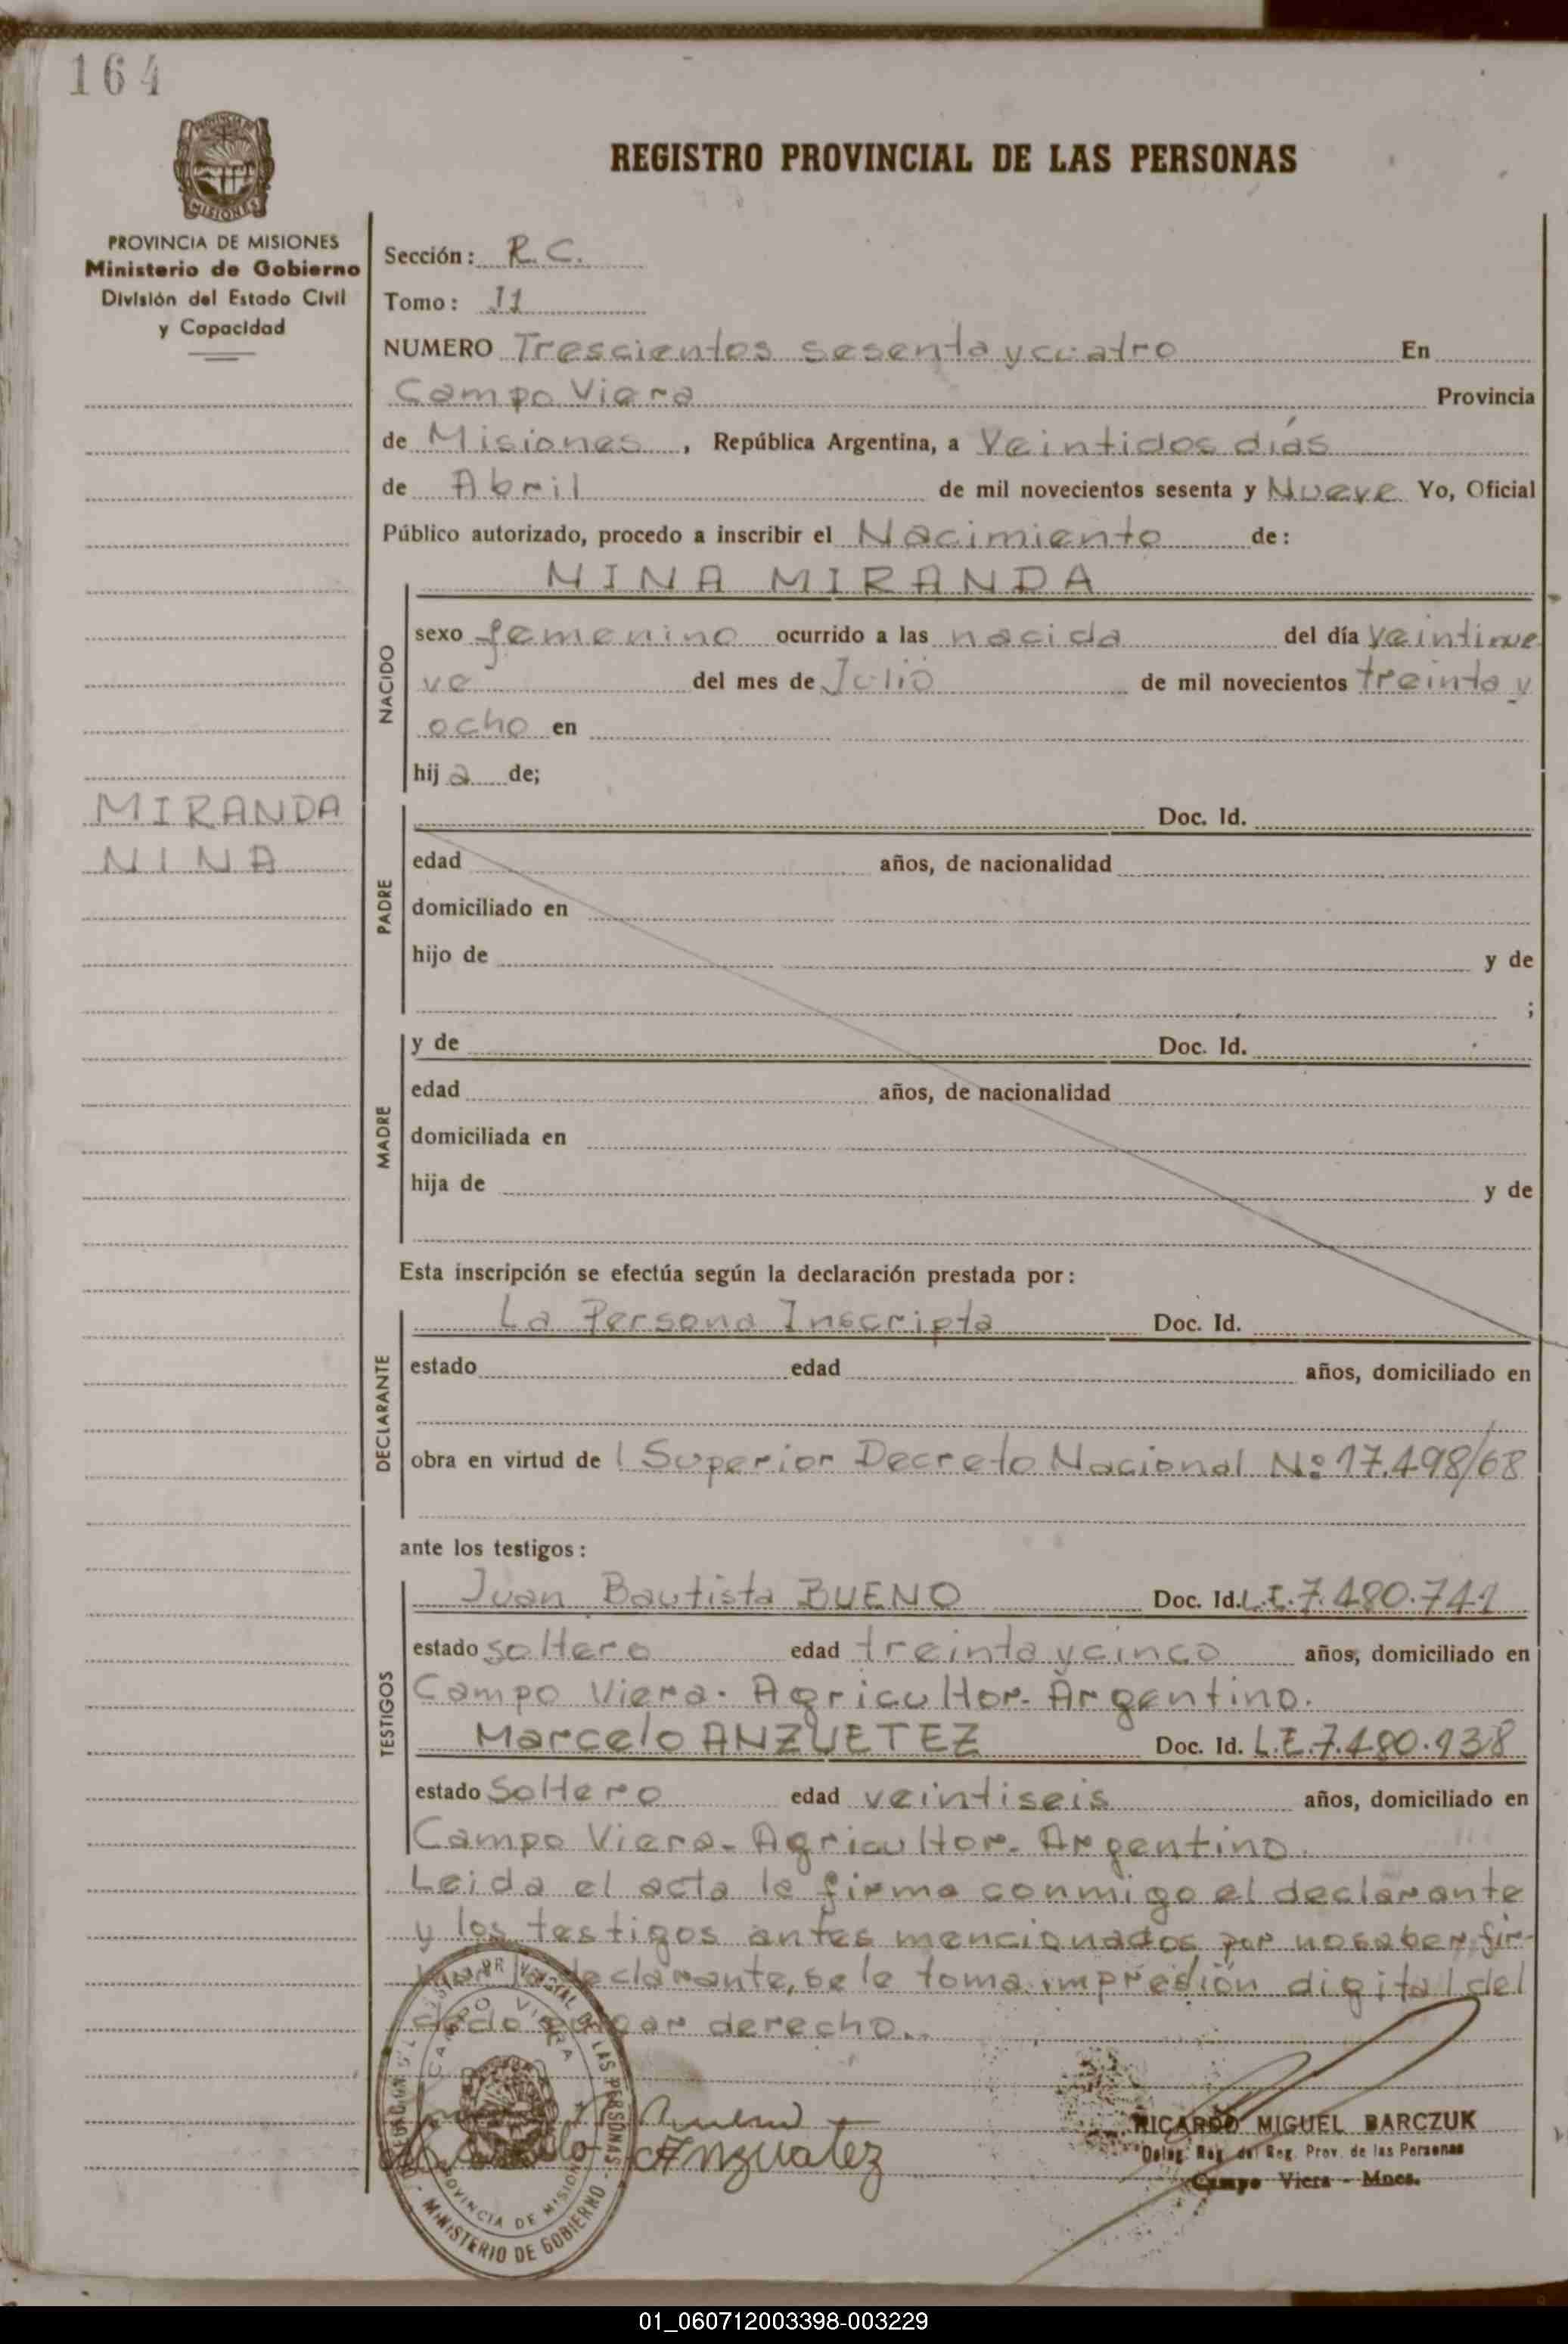 164
MISIONES
PROVINCIA DE MISIONES
Ministerio de Gobierno
División del Estado Civil
y Capacidad
REGISTRO PROVINCIAL DE LAS PERSONAS
Sección: R.C.
Tomo: II
NUMERO Trescientos sesenta y cuatro En
Campo Viera Provincia
de Misiones, República Argentina, a Veintidos días
de Abril de mil novecientos sesenta y Nueve Yo, Oficial
Público autorizado, procedo a inscribir el Nacimiento de:
NINA MIRANDA
NACIDO
sexo femenino ocurrido a las nacida del día veintinue
ve del mes de Julio de mil novecientos treinta y
ocho en
hija de;
MIRANDA
NINA
PADRE
Doc. Id.
edad años, de nacionalidad
domiciliado en
hijo de y de
;
MADRE
y de Doc. Id.
edad años, de nacionalidad
domiciliada en
hija de y de
Esta inscripción se efectúa según la declaración prestada por:
DECLARANTE
La Persona Inscripta Doc. Id.
estado edad años, domiciliado en
obra en virtud de l Superior Decreto Nacional Nº 17.498/68
ante los testigos:
TESTIGOS
Juan Bautista BUENO Doc. Id. L.E. 7.480.741
estado soltero edad treinta y cinco años, domiciliado en
Campo Viera. Agricultor. Argentino.
Marcelo ANZUETEZ Doc. Id. L.E. 7.480.138
estado Soltero edad veintiseis años, domiciliado en
Campo Viera - Agricultor. Argentino.
Leida el acta la firma conmigo el declarante
y los testigos antes mencionados por no saber fir-
mar la declarante, se le toma impresión digital del
dedo pulgar derecho..
CAMPO VIERA
PROVINCIA DE MISIONES
MINISTERIO DE GOBIERNO
RICARDO MIGUEL BARCZUK
Deleg. Reg. del Reg. Prov. de las Personas
Campo Viera - Mnes.
01_060712003398-003229